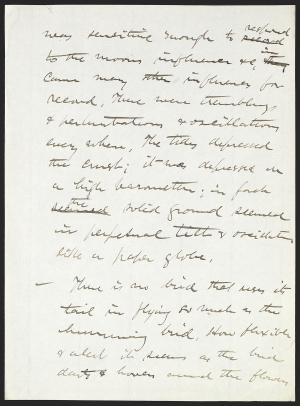 was sensitive enough to record respond
to the moons influence &c, & in
came many other influences for
record, There were tremblings,
& perturbations & oscillations
every where, The tides depressed
the crust; it was depressed in
a high barometer; in fact
seemed the solid ground seemed
in perpetual tilt & oscillation
like a paper globe.
— There is no bird that uses its
tail in flying so much as the
humming bird. How flexible
& alert it seems as the bird
darts & hovers around the flowers